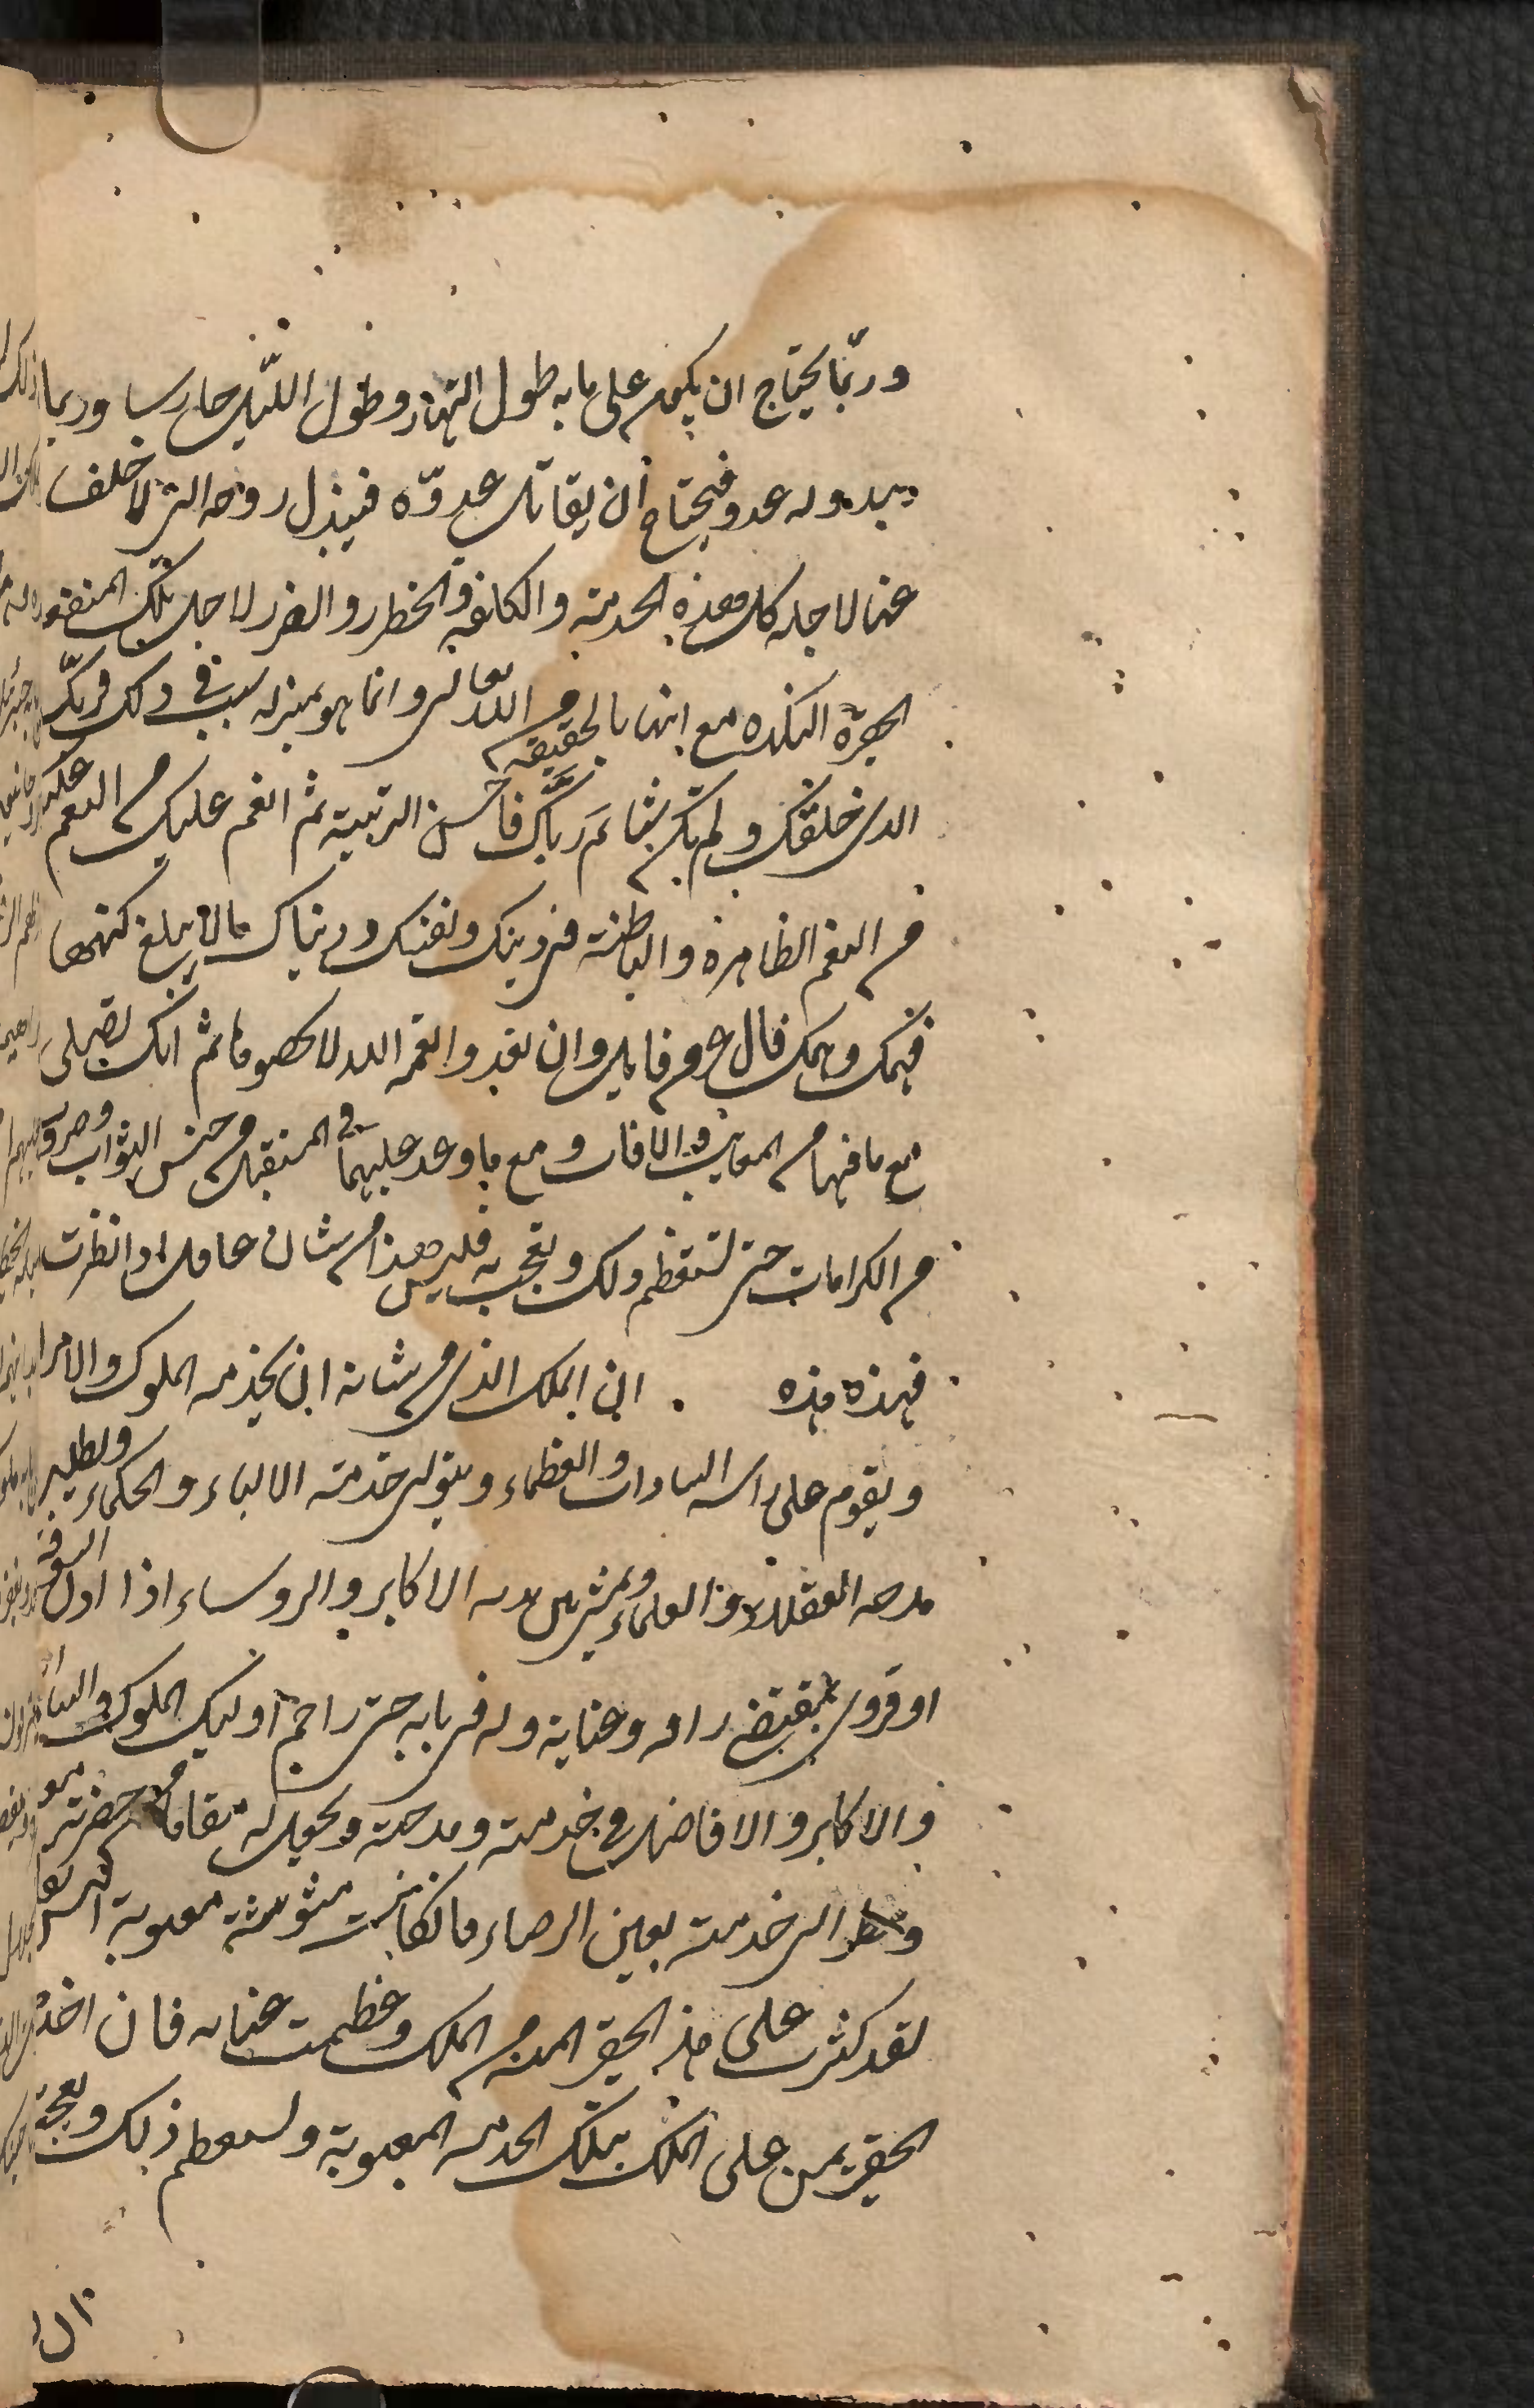 وربّما يحتاج ان يكون على بابه طول النهار وطول اللّيل حارسا وربما
يبدو له عدو فيحتاج أن يقاتل عدوّه فيبذل روحه التى لا خلف
عنها لاجله كل هذه الخدمة والكلفة والخطر والضرر لاجل تلك المنفعة
الحقيرة النكدة مع انها بالحقيقة من الله تعالى وانما هو بمنزلة سبب فى ذلك فربّك
الذى خلقك ولم تك شيئا ثم ربّاك فاحسن التربية ثم انعم عليك من النعم
من النعم الظاهرة والباطنة فى دينك ونفسك ودنياك مالا يبلغ كنهها
فهمك وهمك قال عز من قايل وان تعدوا نعمة الله لا تحصوها ثم انك تصلى
مع ما فيها من المعايب والافات ومع ما وعد عليهما فى المستقبل من حسن الثواب وصروف
من الكرامات حتى تستعظم ذلك وتعجب به فليس هذا من شان عاقل اذا نظرت
فهذه هذه . ان الملك الذى من شانه ان يخدمه الملوك والامرا
ويقوم على راسه السادات والعظماء ويتولى خدمته الالباء والحكماء ويطلب
مدحه العقلاء والعلماء ويمشى بين يديه الاكابر والروساء اذا اذن لسوقى
او قروى بمقتضى رافة وعناية وله فى بابه حتى زاحم اوليك الملوك والسادات
والاكابر والافاضل فى خدمته ومدحته وجعل له مقاما من حضرته
ونظر الى خدمته بعين الرضاء مالكا نت مشوشة معيوبة اليس يقال
لقد كثرت على هذا الحقير المنة من الملك وعظمت عنايته فان اخذ
الحقير يمن على الملك بتلك الخدمة المعيوبة ويستعظم ذلك ويعجب